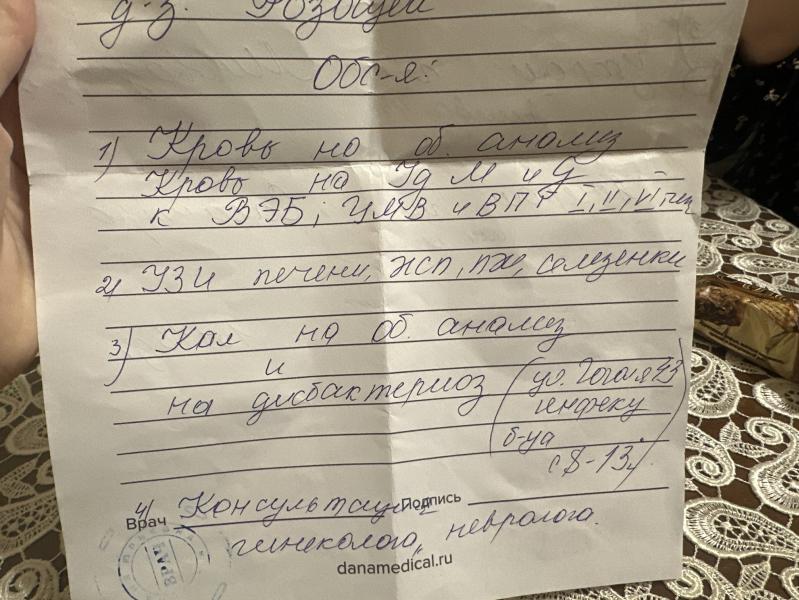 Обс-я:
1) Кровь на об. анализ
Кровь на Ig M и G
к ВЭБ; ЦМВ и ВПГ I, II, VI
2) УЗИ печени, жп, пж, селезенки
3) Кал на об. анализ
и
на дисбактериоз (ул. Гоголя 43
инфекц
б-ца
с 8-13)
4) Консультация
Врач Подпись
гинеколога, невролога.
danamedical.ru
ВРАЧ